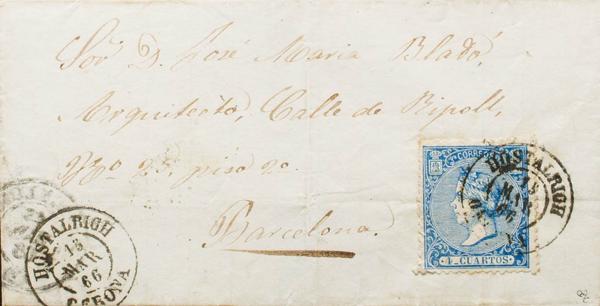 Sor D. José Maria Bladó,
Arquitecto, Calle de Ripoll,
Nº 25, piso 2º
Barcelona.
CORREOS
4 CUARTOS
HOSTALRICH
MAR
66
HOSTALRICH
15
MAR
66
GERONA